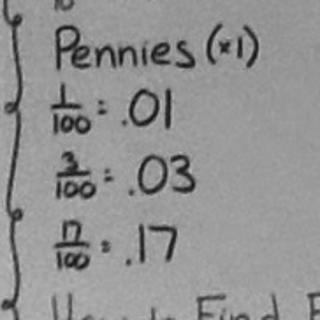 Pennies (×1)
1/100 = .01
3/100 = .03
17/100 = .17
How to Find